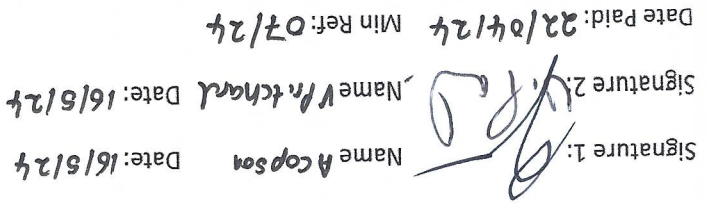 Signature 1: Name A Copson Date: 16/5/24
Signature 2: Name V Pritchard Date: 16/5/24
Date Paid: 22/04/24 Min Ref: 07/24